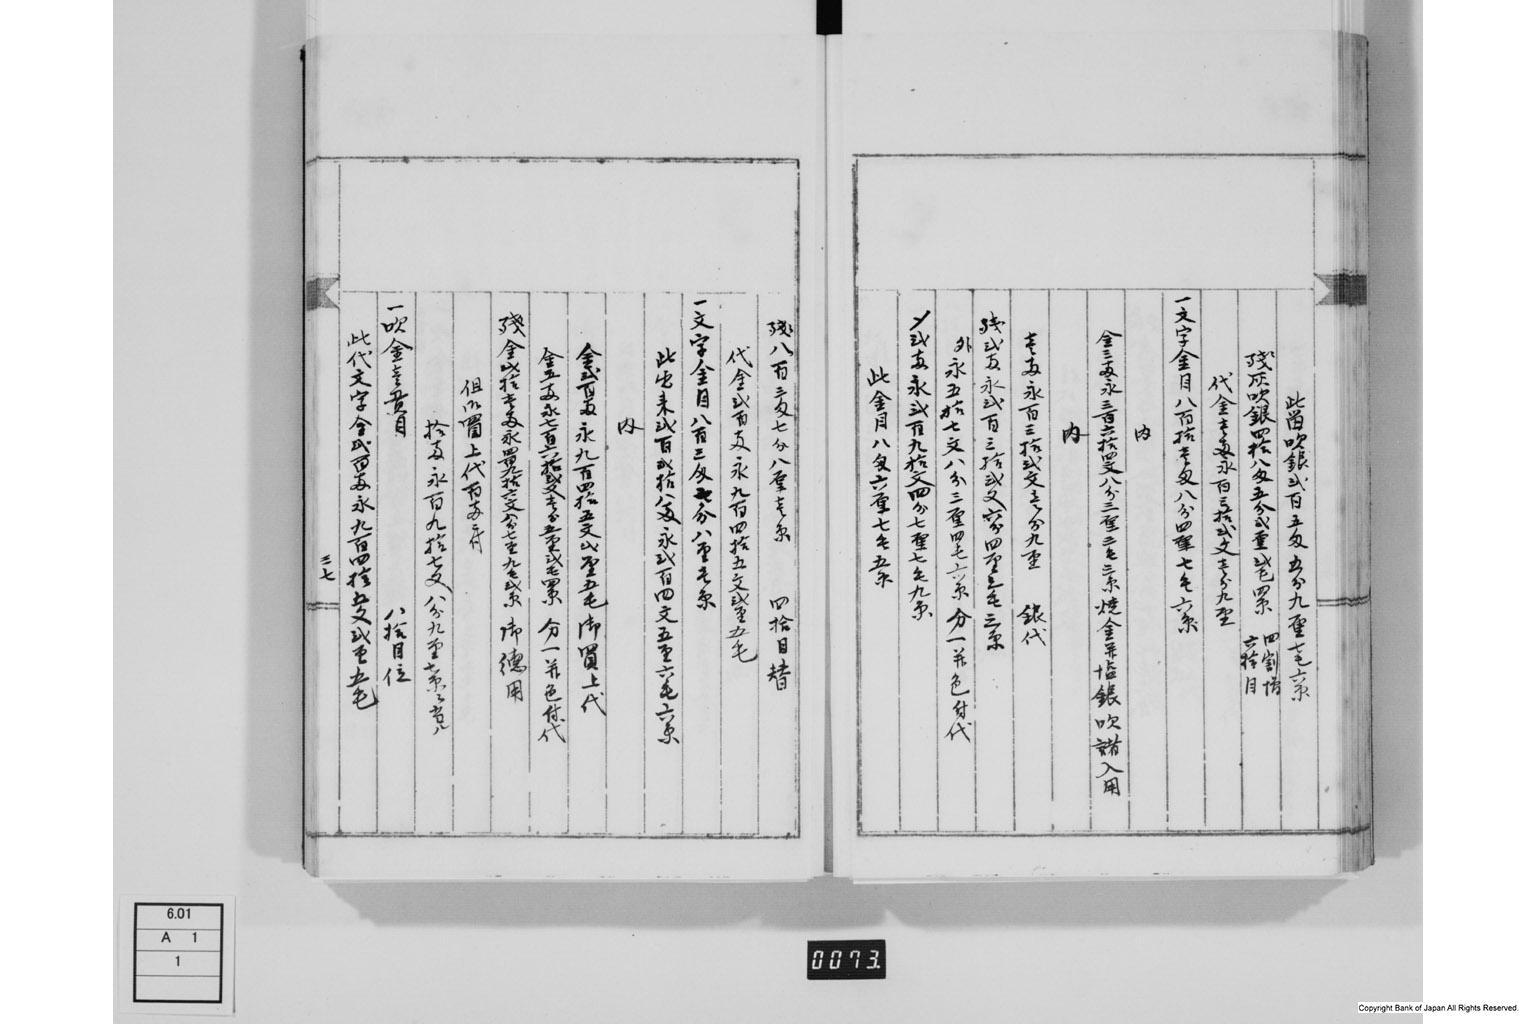 此留吹銀弐百五匁五分九厘七毛六糸
残灰吹銀四拾八匁五分弐厘弐毛四糸 四割増 六拾目
代金壱両永百三拾弐文壱分九厘
一文字金目八百拾壱匁八分四厘七毛六糸
内
金三両永三百六拾四文八分三厘三毛三糸焼金并塩銀吹諸入用
内
壱両永百三拾弐文壱分九厘 銀代
残弐両永弐百三拾弐文六分四厘三毛三糸
外永五拾七文八分三厘四毛六糸分一并色付代
〆弐両永弐百九拾文四分七厘七毛九糸
此金目八匁六厘七毛五糸
残八百三匁七分八厘壱糸 四拾目替
代金弐百両永九百四拾五文弐厘五毛
一文字金目八百三匁七分八厘壱糸
此出来弐百弐拾八両永弐百四文五厘六毛六糸
内
金弐百両永九百四拾五文弐厘五毛御買上代
金五両永七百六拾弐文壱分五厘弐毛四糸分一并色付代
残金弐拾壱両永四百九拾六文八分七厘九毛弐糸御徳用
但御買上代百両ニ付
拾両永百九拾七文八分九厘七糸ニ当ル
一吹金壱貫目 八拾目位
此代文字金弐百両永九百四拾五文弐厘五毛
三七
6.01
A 1
1
0073.
Copyright Bank of Japan All Rights Reserved.